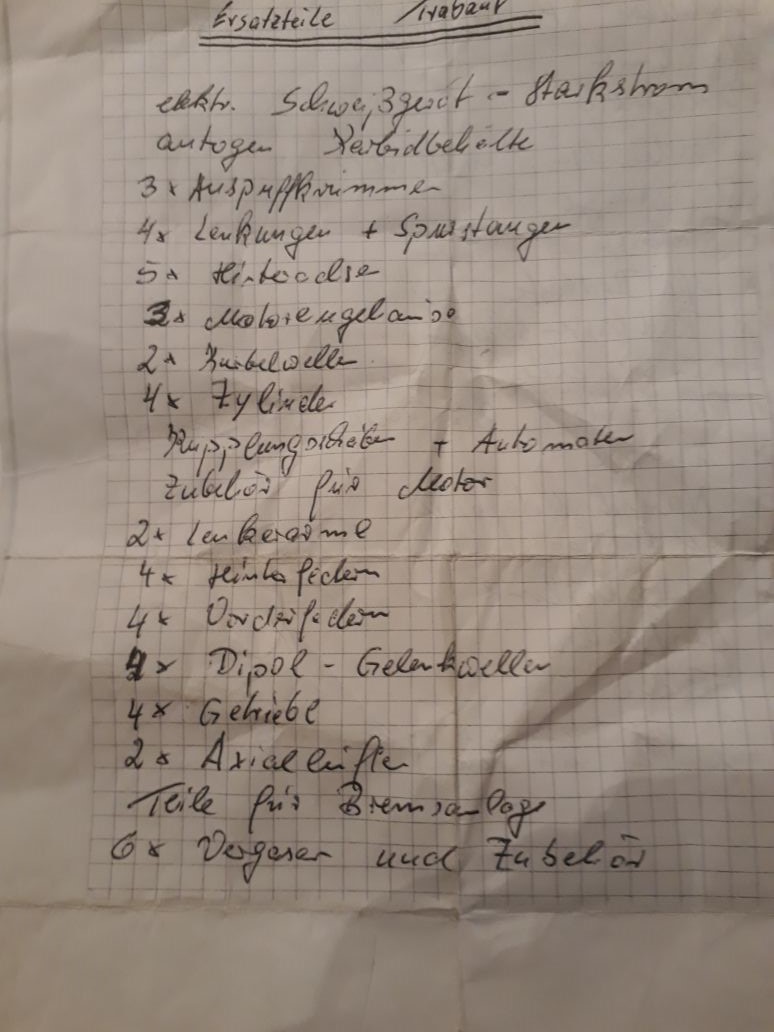 Ersatzteile Trabant
elektr. Schweißgerät - Starkstrom
autogen Karbidbehälte
3x Auspuffkrümmer
4x Lenkungen + Spurstangen
5x Hinterachse
3x Motorengehäuse
2x Kurbelwellen
4x Zylinder
Kupplungscheiben + Automaten
Zubehör für Motor
2x Lenkerarme
4x Hinterfedern
4x Vorderfedern
x Dipol - Gelenkwellen
4x Getriebe
2x Axiallüfter
Teile für Bremsanlage
6x Vergaser und Zubehör